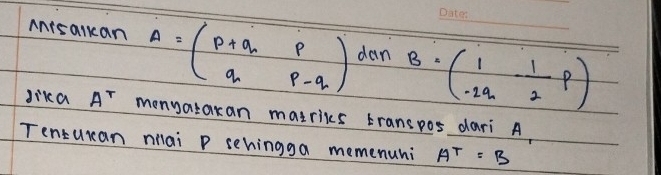 Date:
Misalkan A = ( p+q p ) dan B = ( 1 1/2 p )
( q p-q ) ( -2q )
Jika Aᵀ menyatakan matriks transpos dari A,
Tentukan nilai P sehingga memenuhi Aᵀ = B